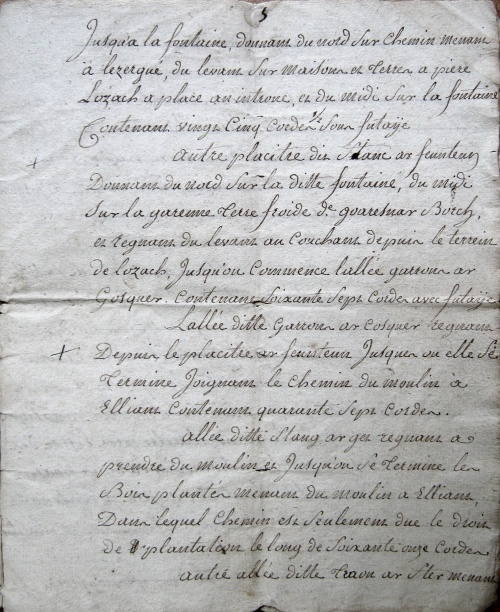 3
jusqu'a la fontaine, donnant du nord sur chemin menant
à Lezergué, du levant sur maisons et terres a piere
Lozach a place an introne, et du midi sur la fontaine
Contenant vingt cinq cordes 1/2 sous futaÿe
autre placitre dit Stanc ar feunteun
Donnant du nord sur la ditte fontaine, du midi
sur la garenne terre froide de goaresnar Borch,
et regnant du levant au couchant depuis le terrein
de lozach, jusqu'ou commence lallée garront ar
Gosquer. contenant soixante sept cordes avec futaÿe
Lallée ditte Garront ar cosquer regnant
Depuis le placitre ar feunteun jusques ou elle se
termine joignant le chemin du moulin à
Elliant contenant quarante sept cordes.
allée ditte Stang ar get regnant a
prendre du moulin et jusqu'ou se termine les
Bois plantés menant du moulin a Elliant
Dans lequel chemin est seulement due le droit
de plantation le long de soixante onze cordes
autre allée ditte traon ar Ster menant